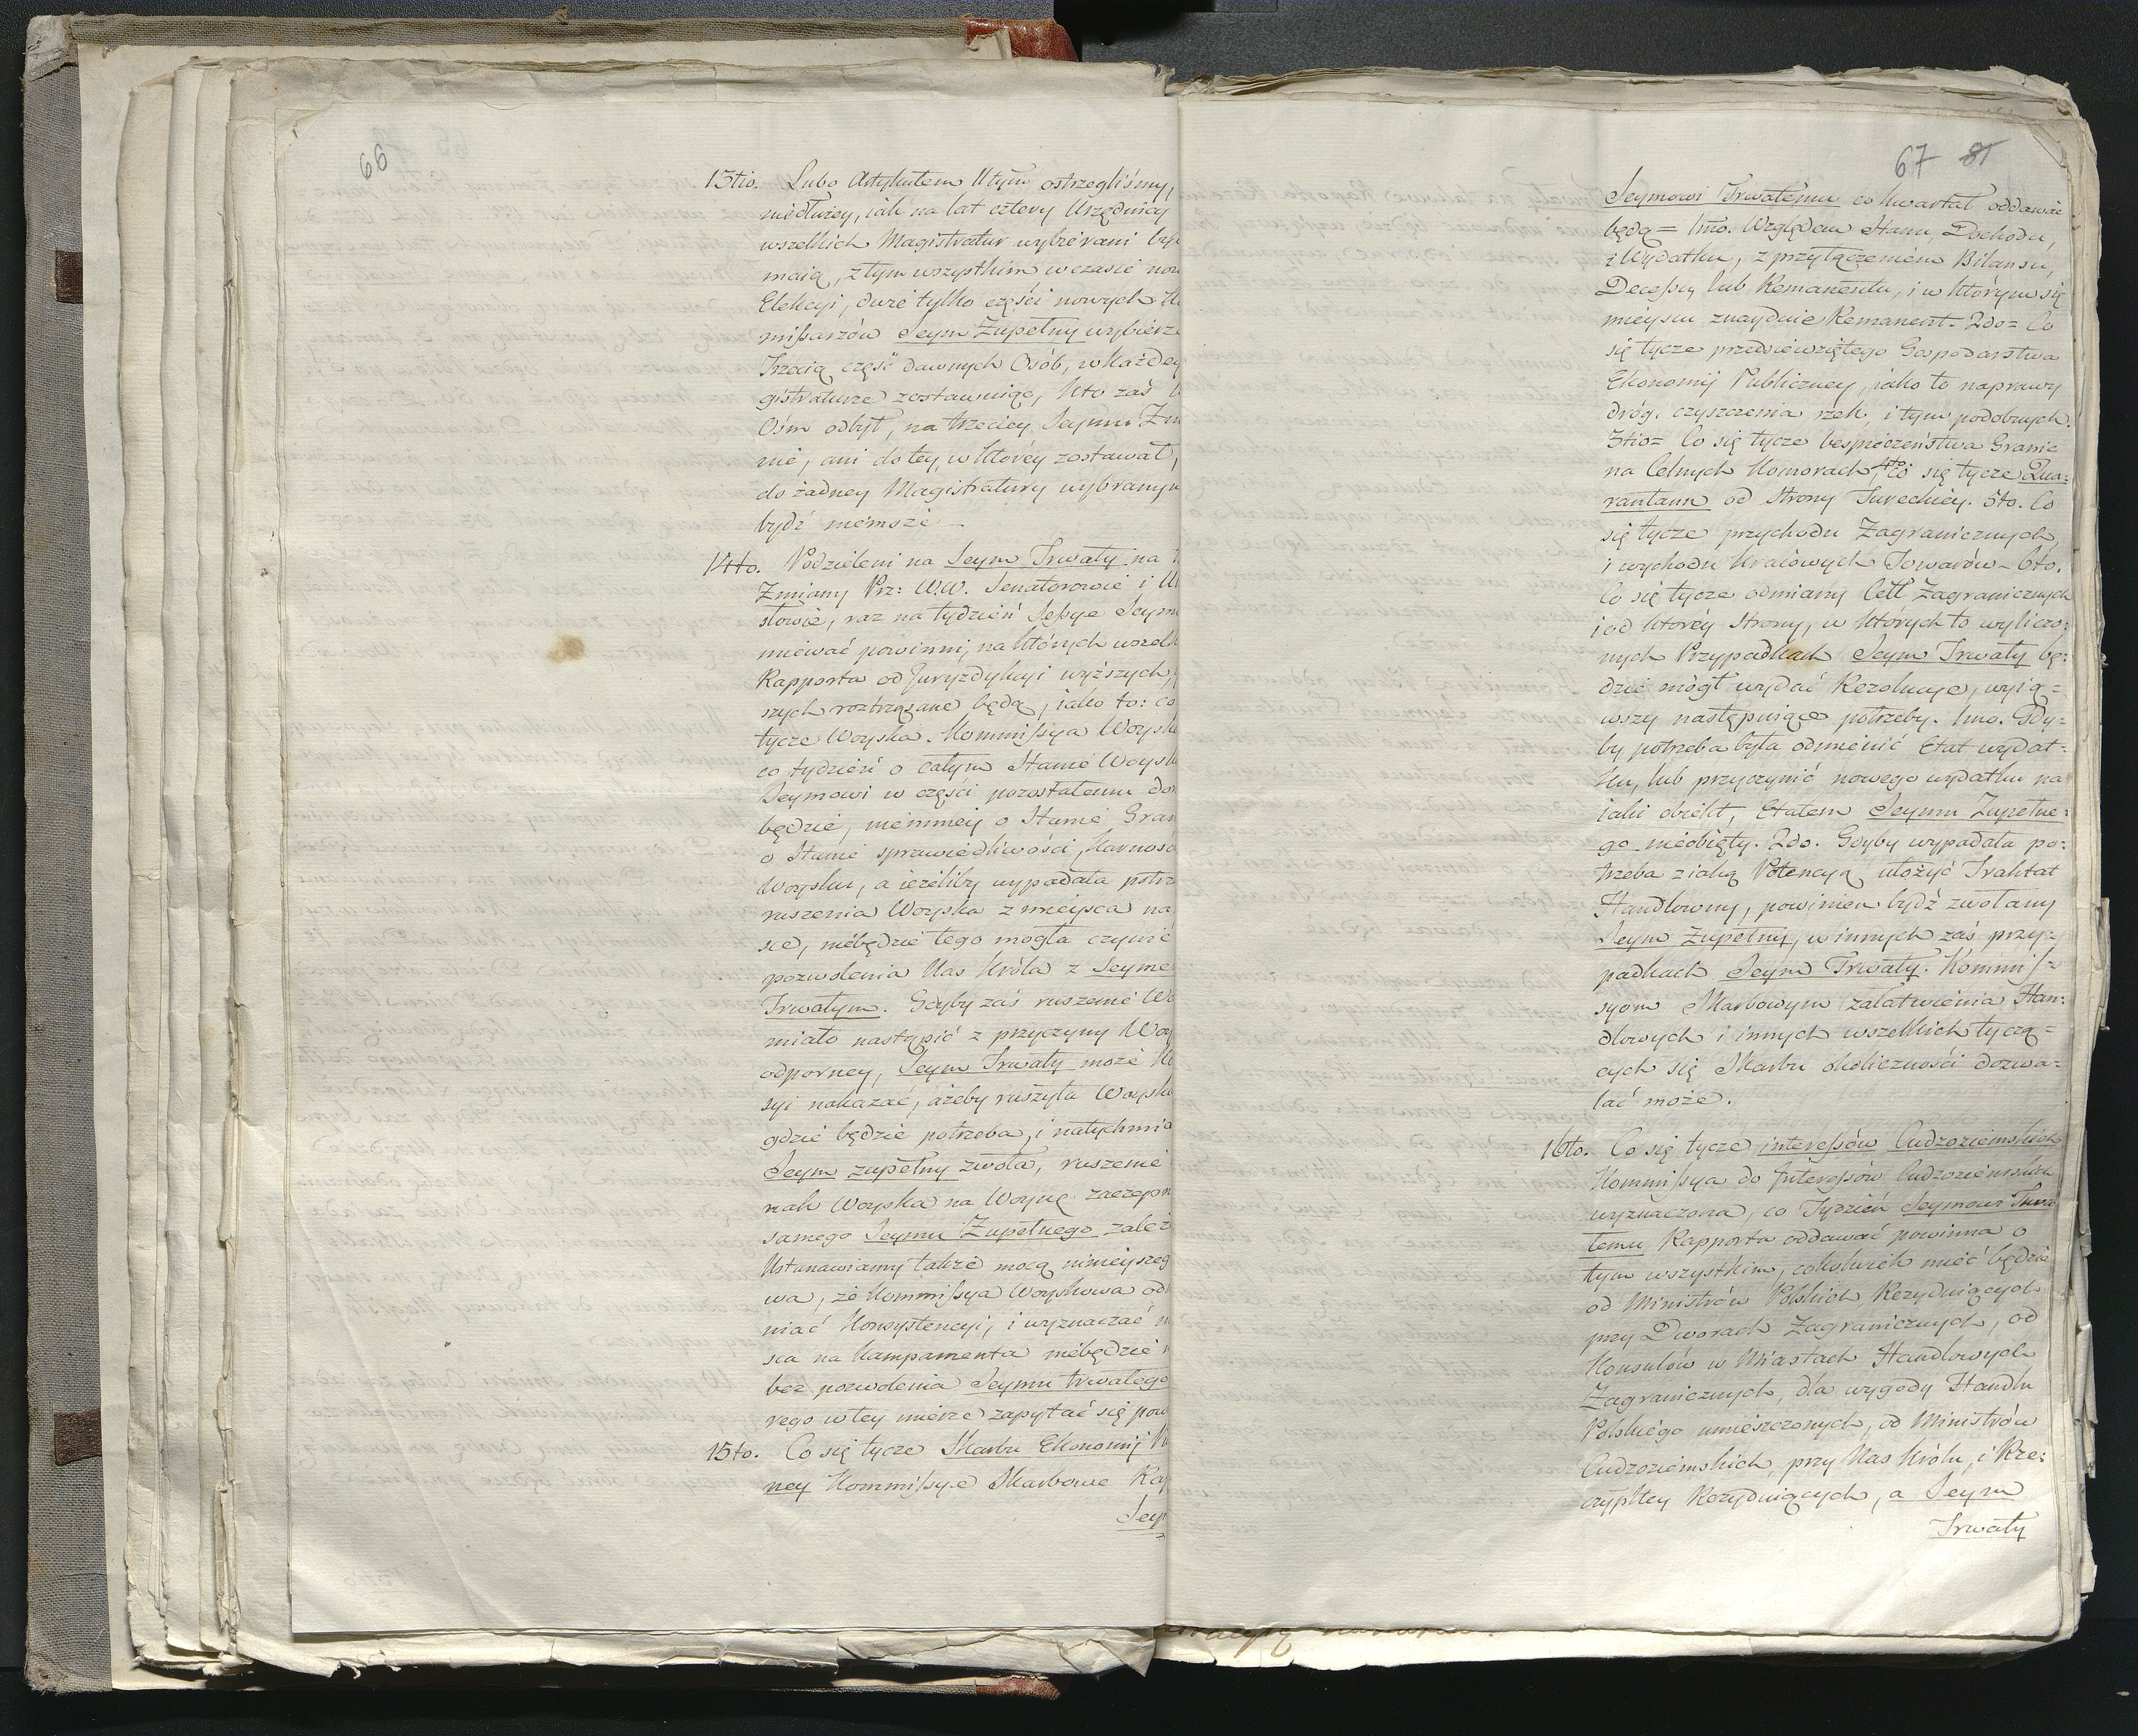 66
13tio. Lubo Artykułem 11tym ostrzegliśmy,
niedłużey, iak na lat cztery Urzędnicy
wszelkich Magistratur wybierani być
maią, z tym wszystkim w czasie now
Elekcyi, dwie tylko części nowych Ko
mißarzów Seym Zupełny wybierze
Trzecią część dawnych Osób, w każdey
gistraturze zostawuiąc, kto zaś
Ośm odbył, na trzeciey Seymu Zm
nie, ani do tey, w którey zostawał,
do żadney Magistratury wybranym
bydź niemoże
14to. Podzieleni na Seym Trwały na
Zmiany Prz: W.W. Senatorowie i
słowie, raz na tydzień Seßye Seym
miewać powinni, na których wszel
Rapporta od Juryzdykcyi wyższych,
szych roztrząsane będą, iako to: co
tycze Woyska. Kommißya Woysk
co tydzień o całym Stanie Woysk
Seymowi w części pozostałemu do
będzie, niemniey o Stanie Gran
o Stanie sprawiedliwości, karność
Woysku, a ieżeliby wypadała potrz
ruszenia Woyska z mieysca na
sce, niebędzie tego mogła czynić
pozwolenia Nas Króla z Seyme
Trwałym. Gdyby zaś ruszenie Wo
miało nastąpić z przyczyny Woy
odporney, Seym Trwały może Ko
syi nakazać, ażeby ruszyła Woysk
gdzie będzie potrzeba, i natychmia
Seym zupełny zwoła, ruszenie
nak Woyska na Woynę zaczepn
samego Seymu Zupełnego zależ
Ustanawiamy także mocą ninieyszeg
wa, że Kommißya Woyskowa od
niać Konsystencyi, i wyznaczać m
sca na Kampamenta niebędzie m
bez pozwolenia Seymu trwałego
rego w tey mierze zapytać się pow
15to. Co się tycze Skarbu Ekonomij
ney Kommißye Skarbowe Rap
Sey
67 81
Seymowi Trwałemu co kwartał oddawać
będą = 1mo. Względem Stanu, Dochodu,
i Wydatku, z przyłączeniem Bilansu,
Deceßu, lub Remanentu, i w którym się
mieyscu znayduie Remanent. 2do= Co
się tycze przedsięwziętego Gospodarstwa
Ekonomij Publiczney, iako to naprawy
dróg, czyszczenia rzek, i tym podobnych.
3tio= Co się tycze bespieczeństwa Granic
na Celnych Komorach, 4to co się tycze Qua=
rantann od Strony Tureckiey. 5to. Co
się tycze przychodu Zagranicznych,
i wychodu Kraiowych Towarów_ 6to.
Co się tycze odmiany Cell Zagranicznych
i od którey Strony, w których to wyliczo=
nych Przypadkach Seym Trwały bę=
dzie mógł wydać Rezolucye, wyią=
wszy następuiące potrzeby. 1mo. Gdy=
by potrzeba była odmienić Etat wydat=
ku, lub przyczynić nowego wydatku na
iaki obiekt, Etatem Seymu Zupełne=
go nieobięty. 2do. Gdyby wypadała po=
trzeba z iaką Potencyą ułożyć Traktat
Handlowny, powinien bydź zwołany
Seym Zupełny, w innych zaś przy=
padkach Seym Trwały. Kommiß=
syom Skarbowym załatwienia Han=
dlowych i innych wszelkich tyczą=
cych się Skarbu okoliczności dozwa=
lać może.
16to. Co się tycze intereßów Cudzoziemskich
Kommißya do Intereßów Cudzoziemskich
wyznaczona, co Tydzień Seymowi Trwa
łemu Rapporta oddawać powinna o
tym wszystkim, cokolwiek mieć będzie
od Ministrów Polskich Rezyduiących
przy Dworach Zagranicznych, od
Konsulów w Miastach Handlowych
Zagranicznych, dla wygody Handlu
Polskiego umieszczonych, od Ministrów
Cudzoziemskich, przy Nas Królu, i Rze=
czypltey Rezyduiących, a Seym
Trwały